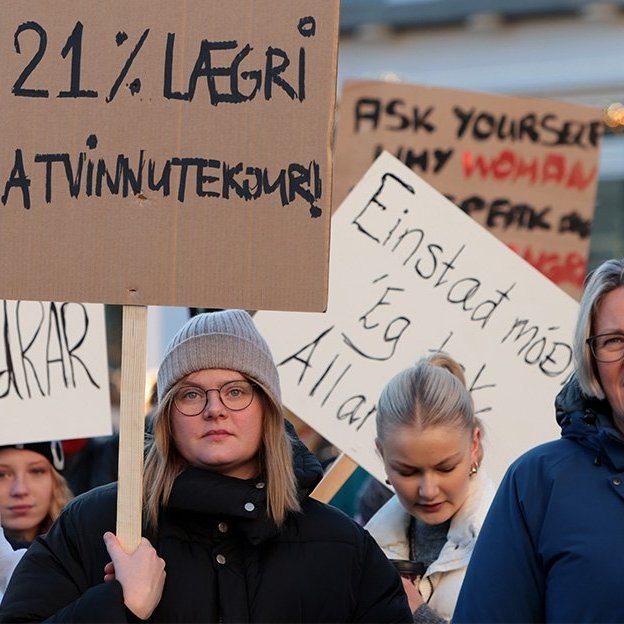 21% LÆGRI
ATVINNUTEKJUR!
ASK YOURSELF
WHY WOMAN
SPEAK
Einstað móð
Ég
Allar